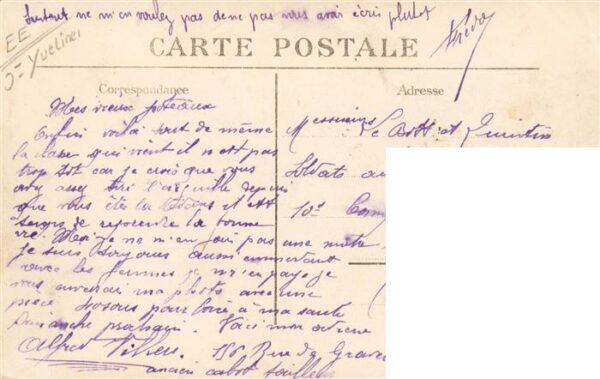 Surtout ne m'en voulez pas de ne pas vous avoir écris plutot
EE
Yvelines
CARTE POSTALE
Correspondance
Adresse
Mes vieux poteaux
Enfin voilà tout de même
la classe qui vient il n est pas
trop tôt car je crois que vous
avez assez tiré l'aiguille depuis
que vous êtes la il est
temps de rejoindre la bonne
vie. Moi je ne m'en fais pas une miette
je suis toujours aussi emmerdant
avec les femmes je m'en paye je
vous enverrai ma photo avec une
pièce pour boire à ma santé
Dimanche prochain. Voici mon adresse
Alfred 156 Rue de
ancien cabot
Messieurs Le et Quintin
Soldats au
10e